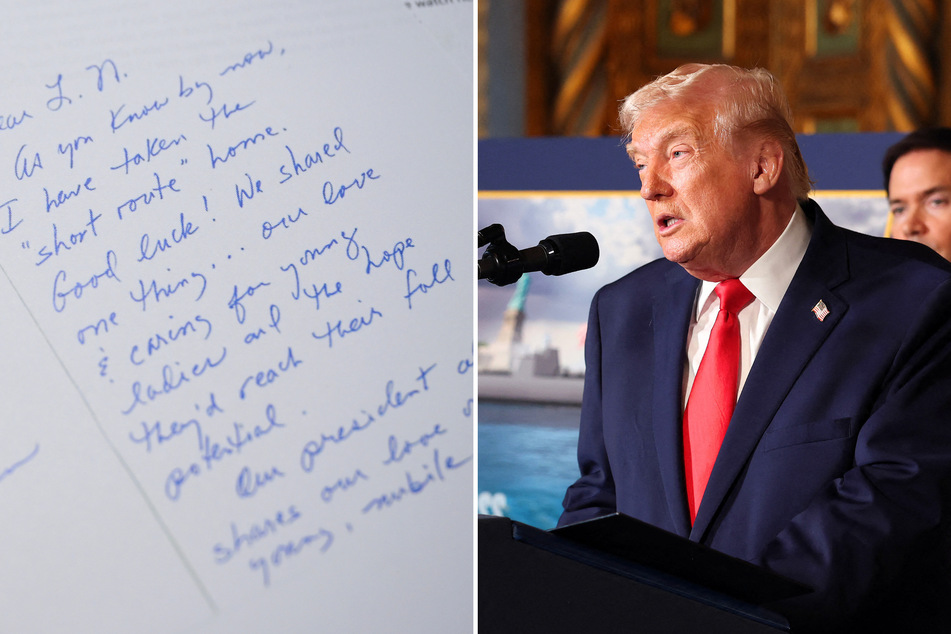 ear L. N.
As you know by now,
I have taken the
"short route" home.
Good luck! We shared
one thing... our love
& caring for young
ladies and the hope
they'd reach their full
potential.
Our president a
shares our love o
young, nubile